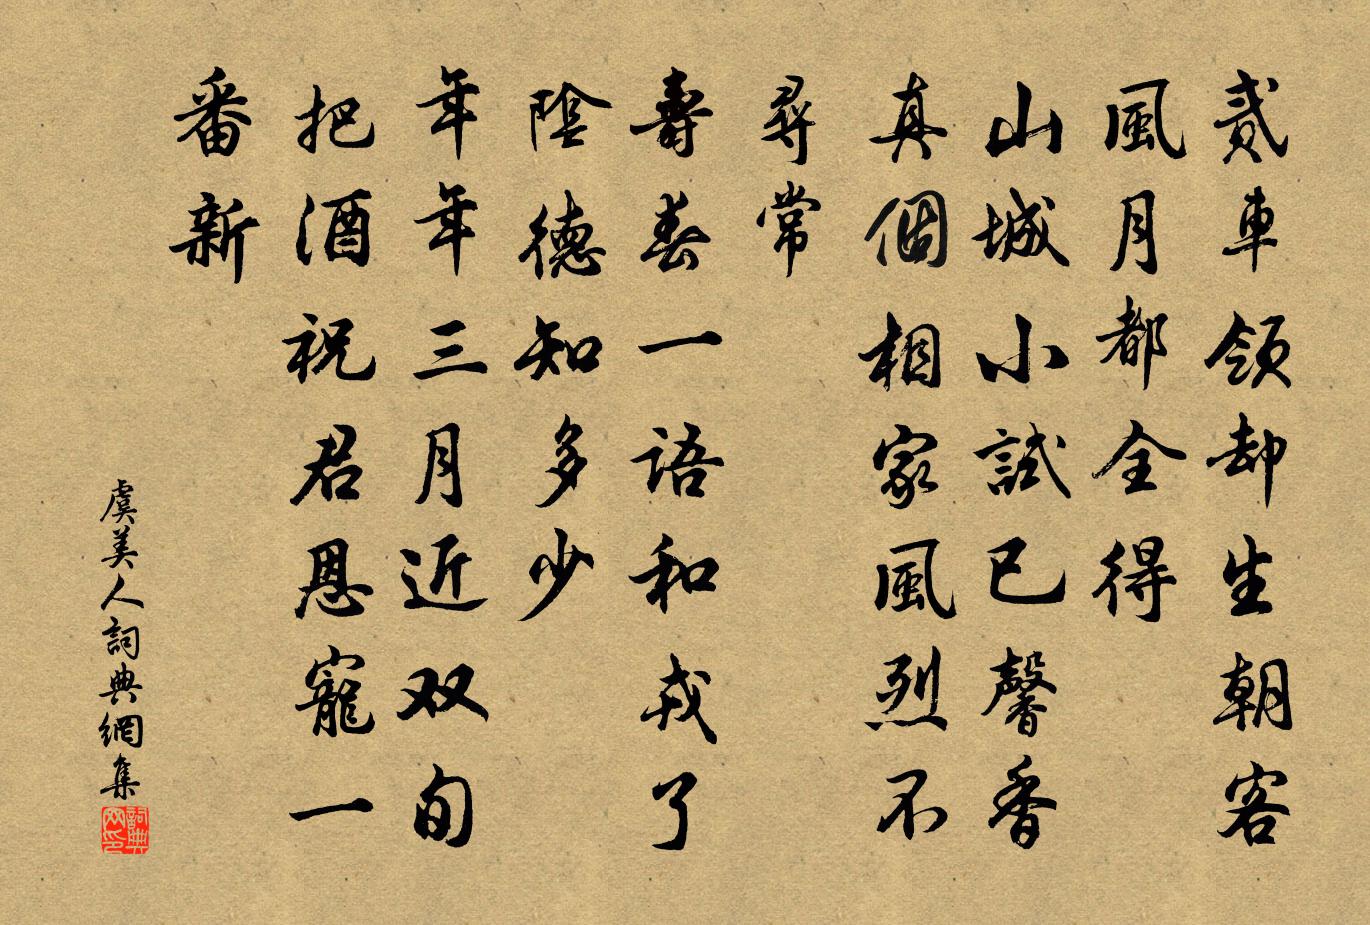 貳車領却生朝客
風月都全得
山城小試已馨香
真個相家風烈不
尋常
壽春一語和戎了
陰德知多少
年年三月近双旬
把酒祝君恩寵一
番新
虞美人詞典網集
詞典
网印